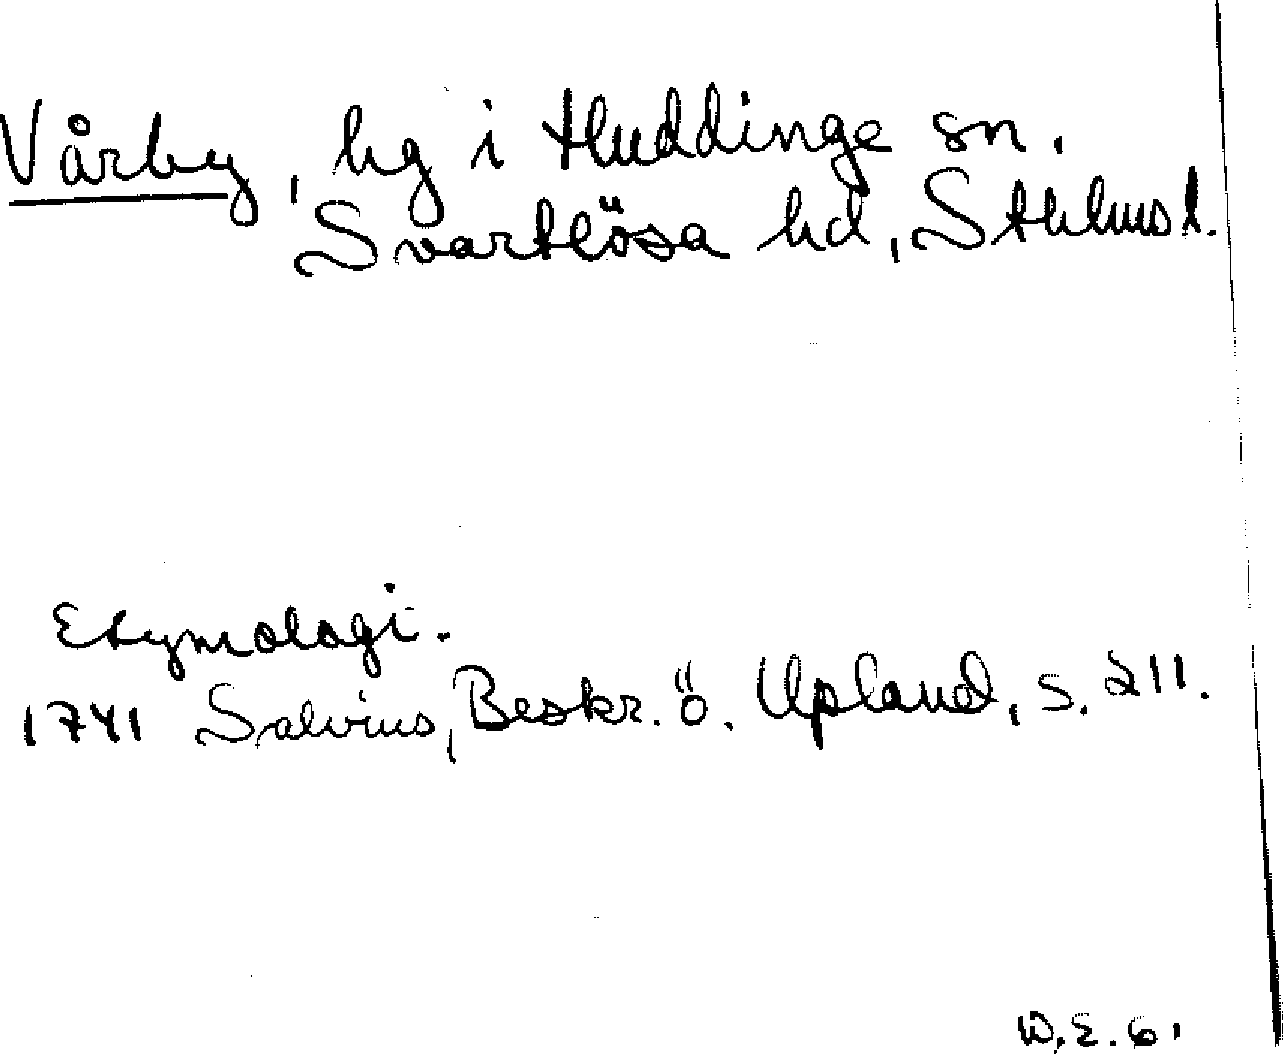 Vårby, hg i Huddinge sn.
Svartlösa hd, Sthlms l.
Etymologi.
1741 Salvius, Beskr. ö. Upland, s. 211.
W.E. 61